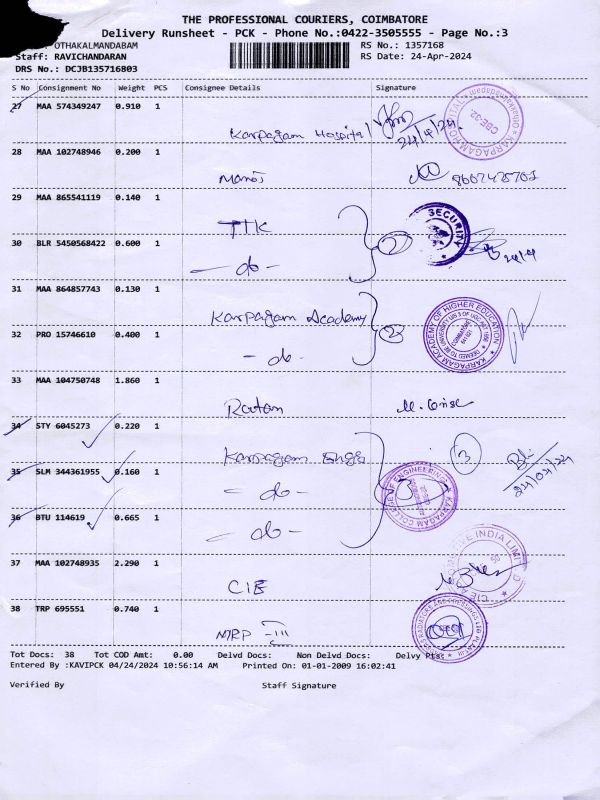 THE PROFESSIONAL COURIERS, COIMBATORE
Delivery Runsheet - PCK - Phone No.:0422-3505555 - Page No.:3
OTHAKALMANDABAM RS No.: 1357168
Staff: RAVICHANDARAN RS Date: 24-Apr-2024
DRS No.: DCJB135716803
S No Consignment No Weight PCS Consignee Details Signature
27 MAA 574349247 0.910 1
Karpagam Hospital 24/4/24
28 MAA 102748946 0.200 1
Manoj
29 MAA 865541119 0.140 1
TTK SECURITY
30 BLR 5450568422 0.600 1
- do - 2 24/4
31 MAA 864857743 0.130 1
Karpagam Academy
32 PRO 15746610 0.400 1
- do - 2
KARPAGAM ACADEMY OF HIGHER EDUCATION
33 MAA 104750748 1.860 1
Ratan
34 STY 6045273 0.220 1
Karpagam Engg 3
35 SLM 344361955 0.160 1
- do - 24/04/24
KARPAGAM COLLEGE OF ENGINEERING
36 BTU 114619 0.665 1
- do -
37 MAA 102748935 2.290 1
CIE
38 TRP 695551 0.740 1
MRP - III
Tot Docs: 38 Tot COD Amt: 0.00 Delvd Docs: Non Delvd Docs: Delvy Pts:
Entered By :KAVIPCK 04/24/2024 10:56:14 AM Printed On: 01-01-2009 16:02:41
Verified By Staff Signature